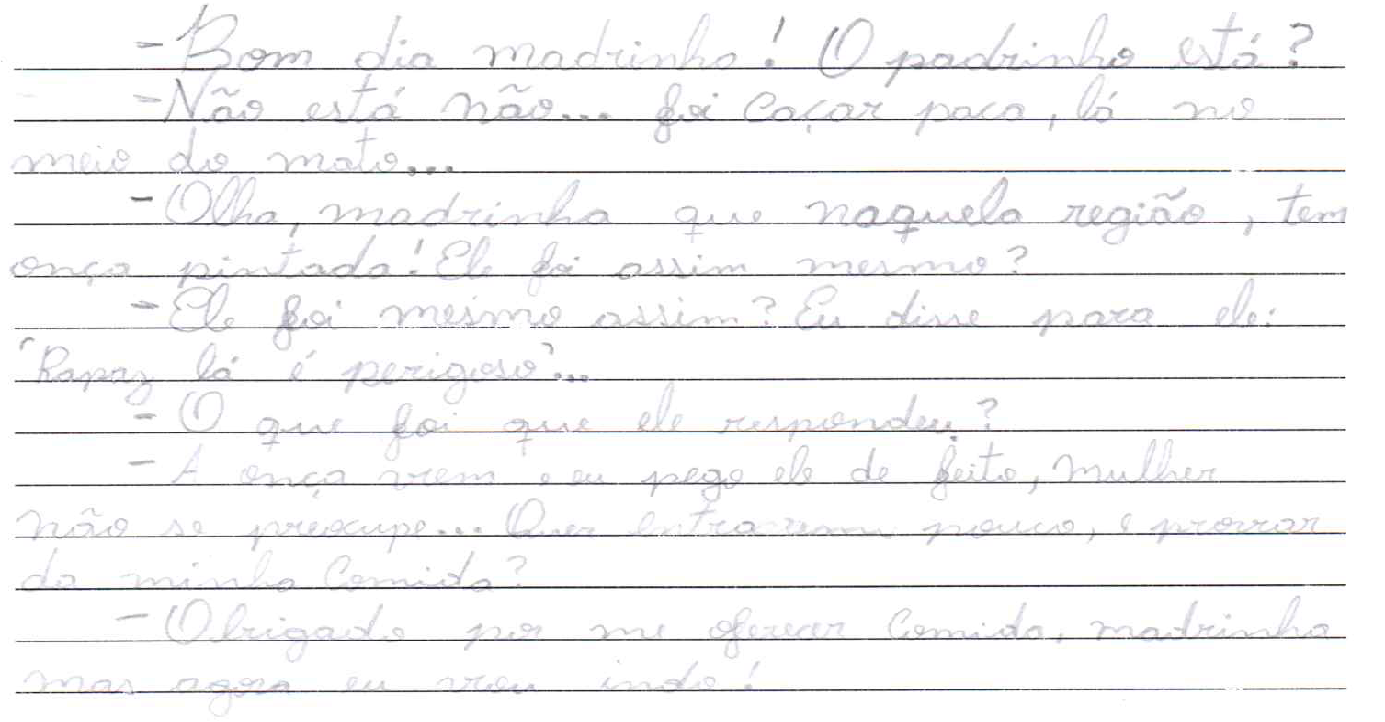 - Bom dia madrinha! O padrinho está?
- Não está não... foi caçar paca, lá no
meio do mato...
- Olha, madrinha que naquela região, tem
onça pintada! Ele foi assim mesmo?
- Ele foi mesmo assim? Eu disse para ele:
"Rapaz lá é perigoso"...
- O que foi que ele respondeu?
- A onça vem e eu pego ela de jeito, mulher
não se preocupe... Quer entrar um pouco, e provar
da minha comida?
- Obrigado por me oferecer comida, madrinha
mas agora eu vou indo!